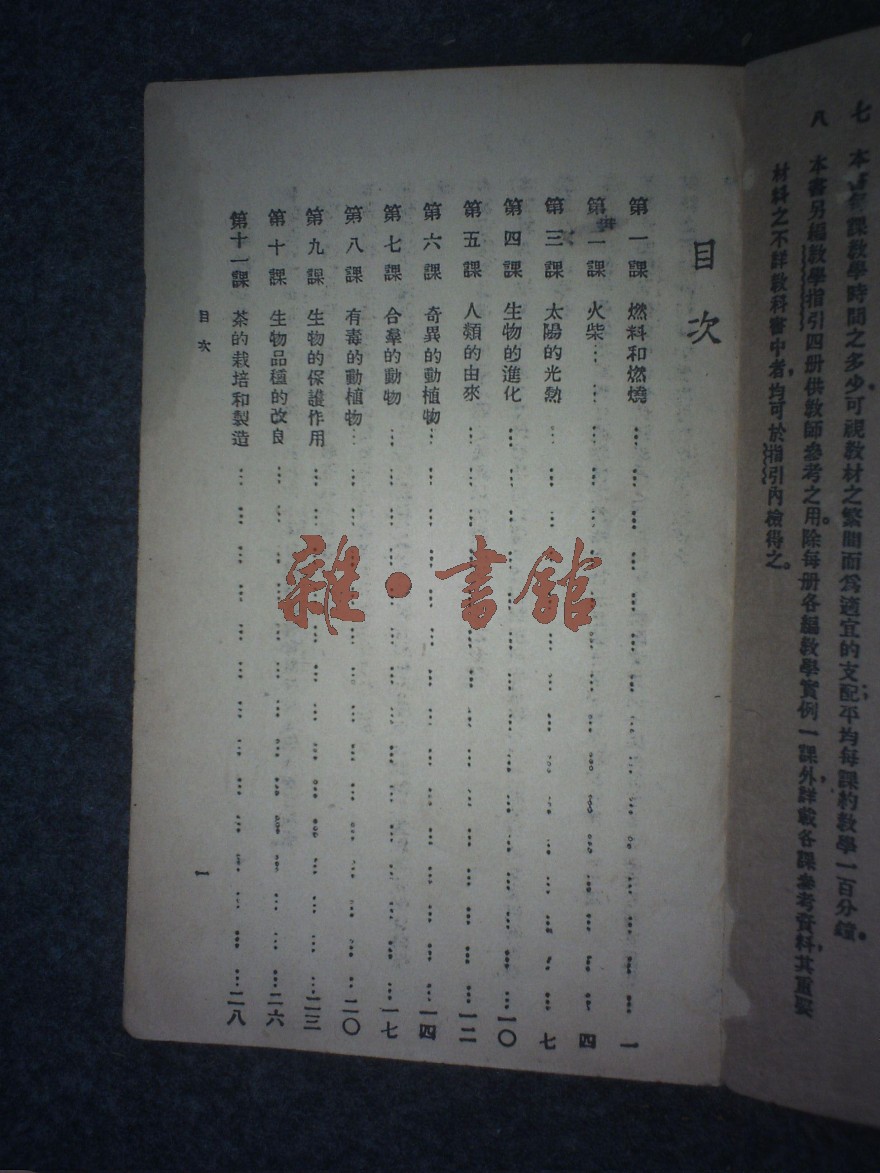 七 本書每課教學時間之多少可視教材之繁簡而爲適宜的支配平均每課約教學一百分鐘。
八 本書另編教學指引四册供教師參考之用。除每册各編教學實例一課外，詳載各課參考資料，其重要
材料之不詳教科書中者，均可於指引內檢得之。
目次
第一課 燃料和燃燒 一
第二課 火柴 四
第三課 太陽的光熱 七
第四課 生物的進化 一〇
第五課 人類的由來 一二
第六課 奇異的動植物 一四
第七課 合羣的動物 一七
第八課 有毒的動植物 二〇
第九課 生物的保護作用 二三
第十課 生物品種的改良 二六
第十一課 茶的栽培和製造 二八
目次 一
雜·書館